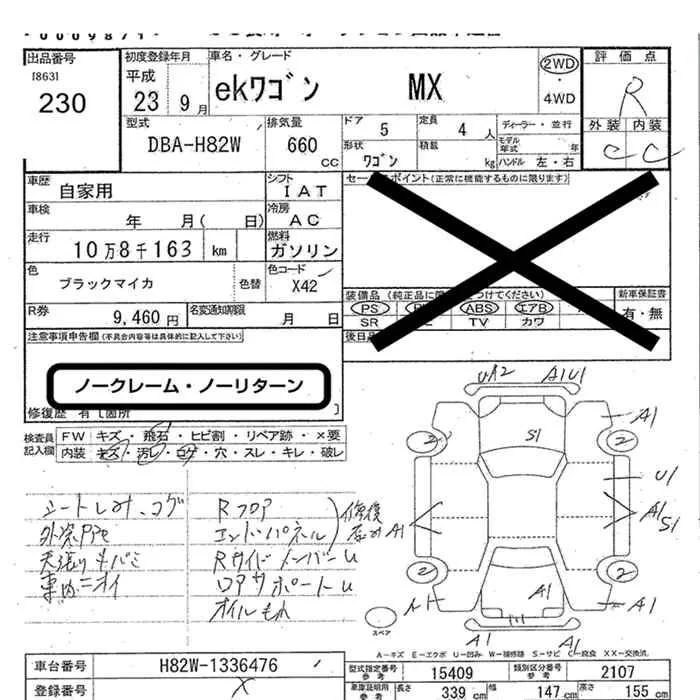 出品番号
[863]
230
初度登録年月
平成
23 9月
車名・グレード
ekワゴン MX
2WD
・
4WD
評価点
R
外装 内装
C C
型式
DBA-H82W
排気量
660
CC
ドア 5
定員 4人
ディーラー・並行
形状
ワゴン
積載
kg
モデル
年式 年
ハンドル 左・右
車歴
自家用
シフト
IAT
セールスポイント(正常に機能するものに限ります)
車検
年 月( 日)
冷房
AC
走行
10万8千163 km
燃料
ガソリン
色
ブラックマイカ
色替
色コード
X42
装備品
PS ABS エアB
SR TV カワ
新車保証書
有・無
R券
9,460円
名変通知期限
月 日
注意事項申告欄(不具合内容等は具体的に記入して下さい)
ノークレーム・ノーリターン
修復歴 有[箇所 ]
検査員
記入欄
FW キズ・飛石・ヒビ割・リペア跡・×要
内装 キズ・汚レ・コゲ・穴・スレ・キレ・破レ
シートしみ、コゲ
天張り
車内ニオイ
Rフロア
エンドパネル
修復
RサイドメンバーU
ロアサポートU
オイルもれ
UR2 A1U1
A1
2 2
S1
U1
A1 A1
S1
2 2
A1
A1
スペア
A1 A1
A-キズ E-エクボ U-凹み W-補修跡 S-サビ C-腐食 XX-交換済
車台番号
H82W-1336476
登録番号
型式指定番号
参考
15409
類別区分番号
参考
2107
車庫証明用
参考
長さ 339 cm
幅 147 cm
高さ 155 cm